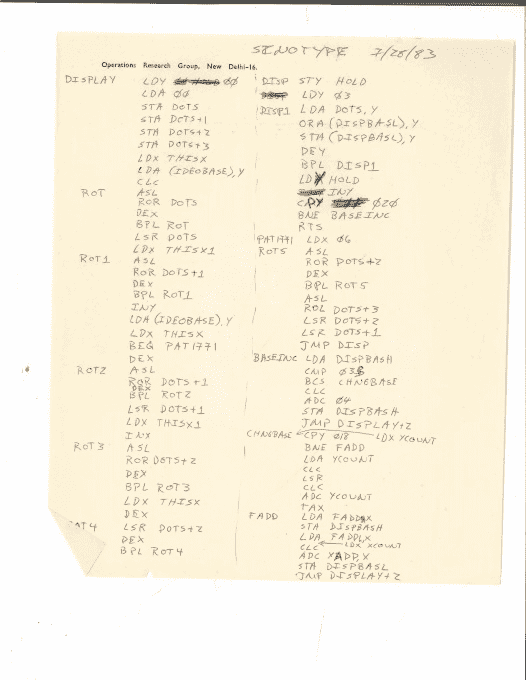 SINOTYPE 7/28/83
Operations Research Group, New Delhi-16.
DISPLAY LDY 00
LDA 00
STA DOTS
STA DOTS+1
STA DOTS+2
STA DOTS+3
LDX THISX
LDA (IDEOBASE),Y
CLC
ROT ASL
ROR DOTS
DEX
BPL ROT
LSR DOTS
LDX THISX1
ROT1 ASL
ROR DOTS+1
DEX
BPL ROT1
INY
LDA (IDEOBASE),Y
LDX THISX
BEQ PAT1771
DEX
ROT2 ASL
ROR DOTS+1
DEX
BPL ROT2
LSR DOTS+1
LDX THISX1
INX
ROT3 ASL
ROR DOTS+2
DEX
BPL ROT3
LDX THISX
DEX
ROT4 LSR DOTS+2
DEX
BPL ROT4
DISP STY HOLD
LDY 03
DISP1 LDA DOTS,Y
ORA (DISPBASL),Y
STA (DISPBASL),Y
DEY
BPL DISP1
LDY HOLD
INY
CPY 020
BNE BASEINC
RTS
PAT1771 LDX 06
ROT5 ASL
ROR DOTS+2
DEX
BPL ROT5
ASL
ROL DOTS+3
LSR DOTS+2
LSR DOTS+1
JMP DISP
BASEINC LDA DISPBASH
CMP
BCS CHNGBASE
CLC
ADC 04
STA DISPBASH
JMP DISPLAY+2
CHNGBASE CPY 018 LDX YCOUNT
BNE FADD
LDA YCOUNT
CLC
LSR
CLC
ADC YCOUNT
TAX
FADD LDA FADDH,X
STA DISPBASH
LDA FADDL,X
CLC LDX XCOUNT
ADC XADD,X
STA DISPBASL
JMP DISPLAY+2